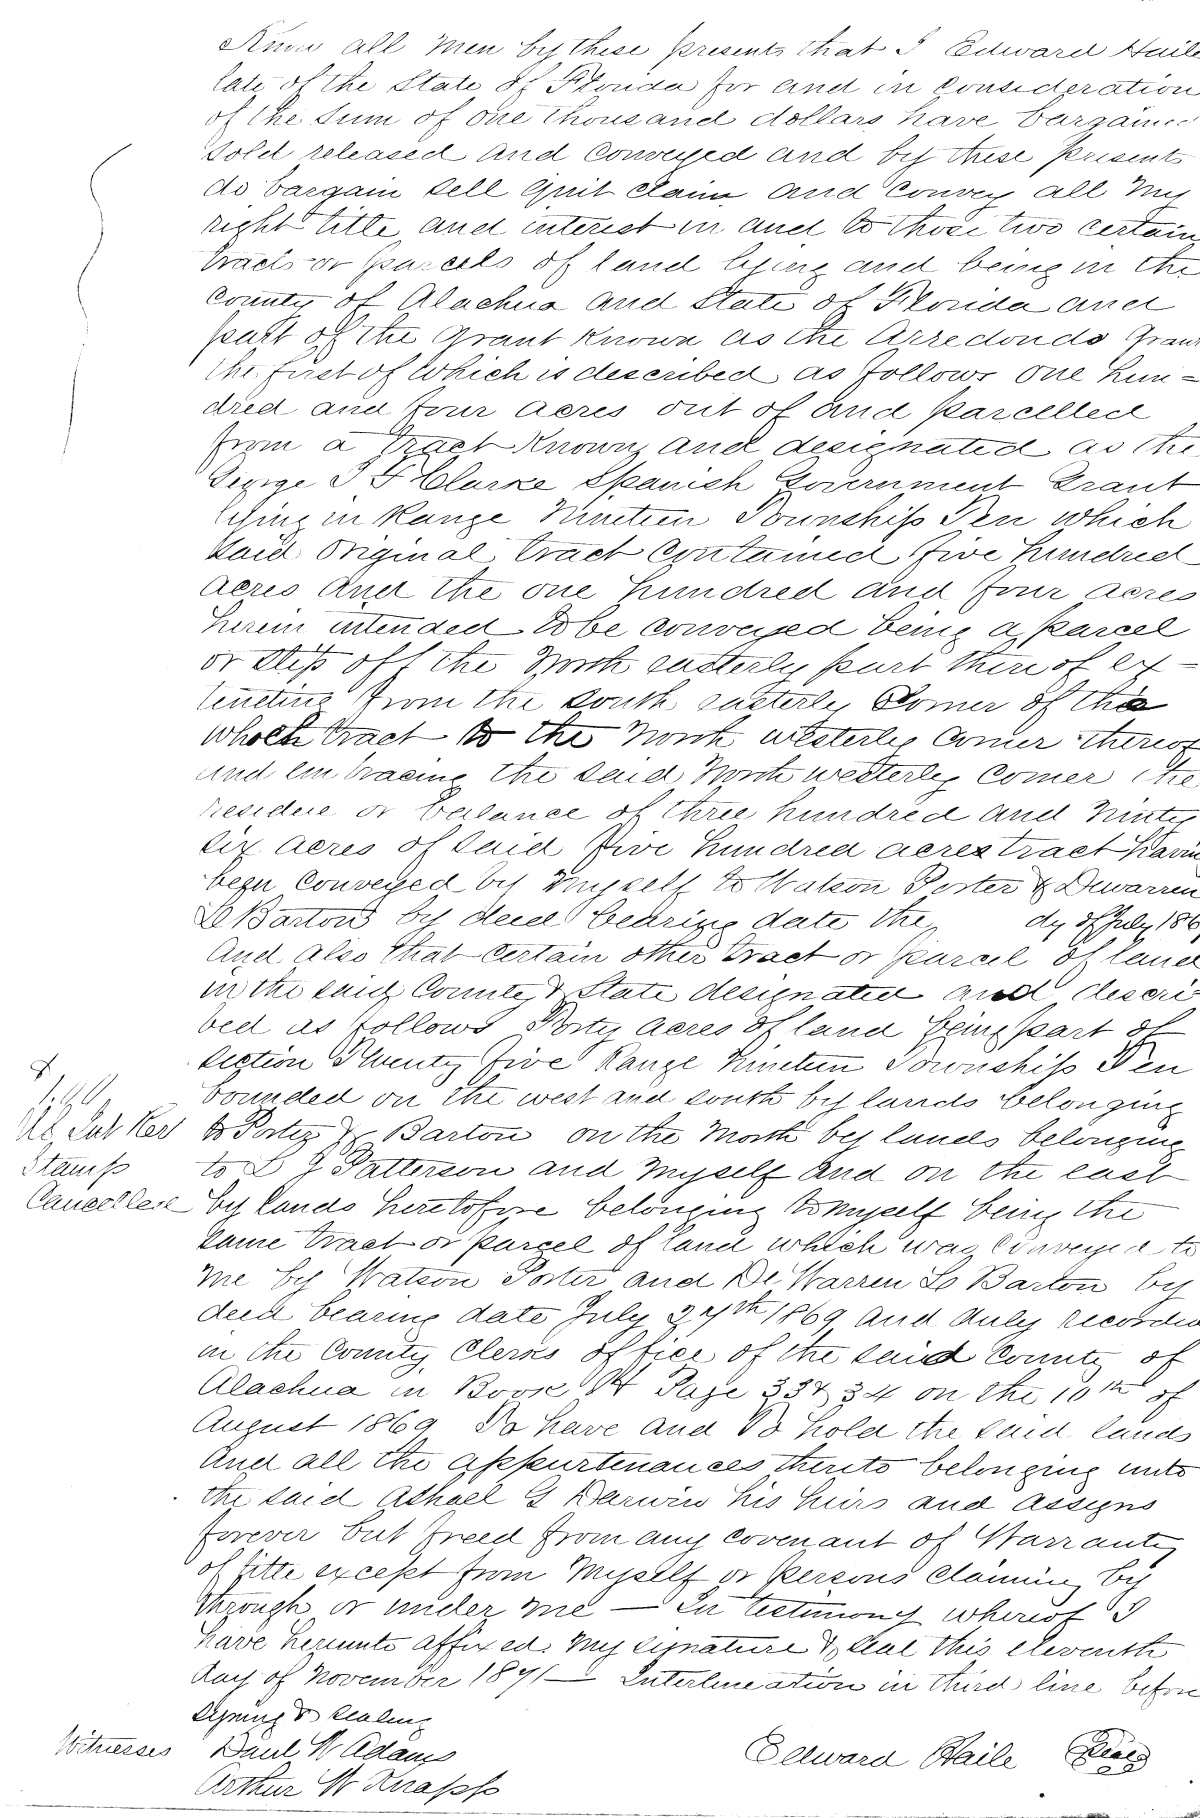 Know all men by these presents that I Edward Haile
late of the State of Florida for and in consideration
of the sum of one thousand dollars have bargained
sold released and conveyed and by these presents
do bargain sell quit claim and convey all my
right title and interest in and to those two certain
tracts or parcels of land lying and being in the
county of Alachua and State of Florida and
part of the grant known as the Arredondo Grant
the first of which is described as follows one hun-
dred and four acres out of and parcelled
from a tract known and designated as the
George I F Clarke Spanish Government Grant
lying in Range Nineteen Township Ten which
said original tract contained five hundred
acres and the one hundred and four acres
herein intended to be conveyed being a parcel
or strip off the North easterly part there of ex-
tending from the south easterly corner of the
whole tract to the North westerly corner thereof
and embracing the said North westerly corner the
residue or balance of three hundred and ninty
six acres of said five hundred acres tract having
been conveyed by myself to Watson Porter & Dewarren
Le Barton by deed bearing date the dy of July 186
And also that certain other tract or parcel of land
in the said County & State designated and descri-
bed as follows Forty acres of land being part of
section Twenty five Range Nineteen Township Ten
bounded on the west and south by lands belonging
to Porter & Barton on the North by lands belonging
to L J Patterson and myself and on the east
by lands heretofore belonging to myself being the
same tract or parcel of land which was conveyed to
me by Watson Porter and De Warren Le Barton by
deed bearing date July 27th 1869 and duly recorded
in the County Clerks office of the said County of
Alachua in Book Page 33 & 34 on the 10th of
August 1869 To have and to hold the said lands
And all the appurtenances thereto belonging unto
the said Ashael G Darwin his heirs and assigns
forever but freed from any covenant of Warranty
of title except from myself or persons claiming by
through or under me — In testimony whereof I
have hereunto affixed my signature & seal this eleventh
day of November 1871 — Interlineation in third line before
signing & sealing
$
1.00
Int Rev
Stamp
Cancelled
Witnesses Paul W Adams
Arthur W Knapp
Edward Haile Seal